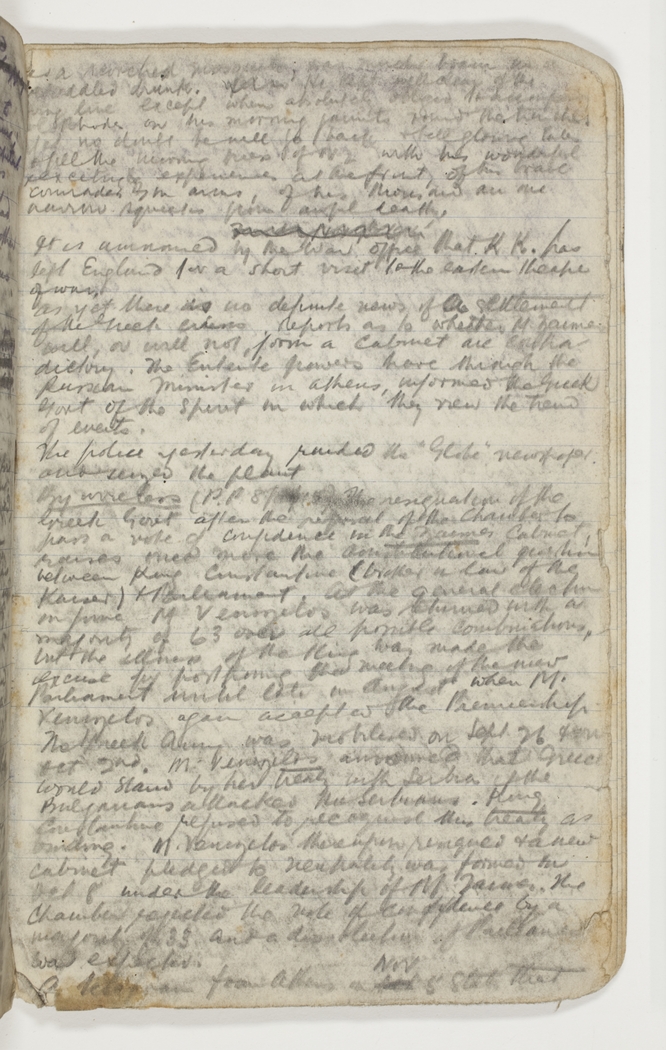 as a scorched mosquito, was
addled drunk.
firing line except when absolutely obliged to accompany
on his morning jaunts round the trenches
yet no doubt he will go back & tell glowing tales
& fill the with his wonderful
exciting experiences at the front, of his brave
comrades in arms, of his thousand and one
narrow squeaks from awful death.
It is announced by the War Office that K of K. has
left England for a short visit to the eastern theatre
of war.
As yet there is no definite news of a settlement
of the Greek crisis. Reports as to whether M Zaimes
will, or will not, form a cabinet are contra-
dictory. The Entente Powers have through the
Russian Minister in Athens, informed the Greek
Govt of the spirit in which they view the trend
of events.
The police yesterday raided the "Globe" newspaper.
and seized the plant
By wireless (P.P 8/ The resignation of the
Greek Govt after the refusal of the Chamber to
pass a vote of confidence in the Zaimes Cabinet,
raises once more the constitutional question
between King Constantine (brother in law of the
Kaiser) & Parliament. At the general election
in June M Venezelos was returned with a
majority of 63 over all possible combinations,
but the illness of the King was made the
excuse for postponing the meeting of the new
Parliament until late in August when M.
Venezelos again accepted the Premiership
The Greek Army was mobilised on Sept 26 & on
Oct 2nd. M. Venezelos announced that Greece
would stand by her treaty with Serbia if the
Bulgarians attacked the Serbians. King
Constantine refused to recognise this treaty as
binding. M. Venezelos thereupon resigned & a new
cabinet pledged to neutrality was formed on
Oct 8 under the leadership of M Zaimes. The
Chamber rejected the vote of confidence by a
majority of 33 and a dissolution of Parliament
was expected.
Nov
A telegram from Athens 8 states that